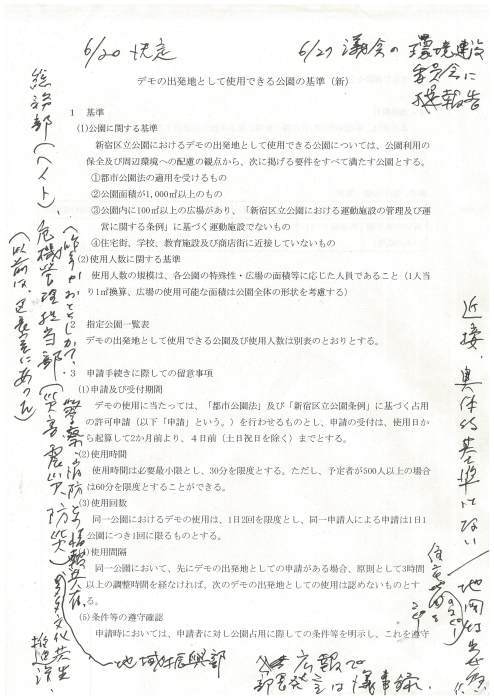 6/20 決定
6/27 議会の環境建設
委員会に
報告
デモの出発地として使用できる公園の基準（新）
1　基準
(1)公園に関する基準
新宿区立公園におけるデモの出発地として使用できる公園については、公園利用の
保全及び周辺環境への配慮の観点から、次に掲げる要件をすべて満たす公園とする。
①都市公園法の適用を受けるもの
②公園面積が1,000㎡以上のもの
③公園内に100㎡以上の広場があり、「新宿区立公園における運動施設の管理及び運
営に関する条例」に基づく運動施設でないもの
④住宅街、学校、教育施設及び商店街に近接していないもの
(2)使用人数に関する基準
使用人数の規模は、各公園の特殊性・広場の面積等に応じた人員であること（1人当
り1㎡換算、広場の使用可能な面積は公園全体の形状を考慮する）
2　指定公園一覧表
デモの出発地として使用できる公園及び使用人数は別表のとおりとする。
3　申請手続きに際しての留意事項
(1)申請及び受付期間
デモの使用に当たっては、「都市公園法」及び「新宿区立公園条例」に基づく占用
の許可申請（以下「申請」という。）を行わせるものとし、申請の受付は、使用日か
ら起算して2か月前より、4日前（土日祝日を除く）までとする。
(2)使用時間
使用時間は必要最小限とし、30分を限度とする。ただし、予定者が500人以上の場合
は60分を限度とすることができる。
(3)使用回数
同一公園におけるデモの使用は、1日2回を限度とし、同一申請人による申請は1日1
公園につき1回に限るものとする。
(4)使用間隔
同一公園において、先にデモの出発地としての申請がある場合、原則として3時間
以上の調整時間を経なければ、次のデモの出発地としての使用は認めないものとす
る。
(5)条件等の遵守確認
申請時においては、申請者に対し公園占用に際しての条件等を明示し、これを遵守
近接、具体的基準はない
総務部（ヘイト）、
危機管理担当部（災害震災、防災）
警察、消防
多文化共生
推進
地域振興部
広報で
部長発言は議事録